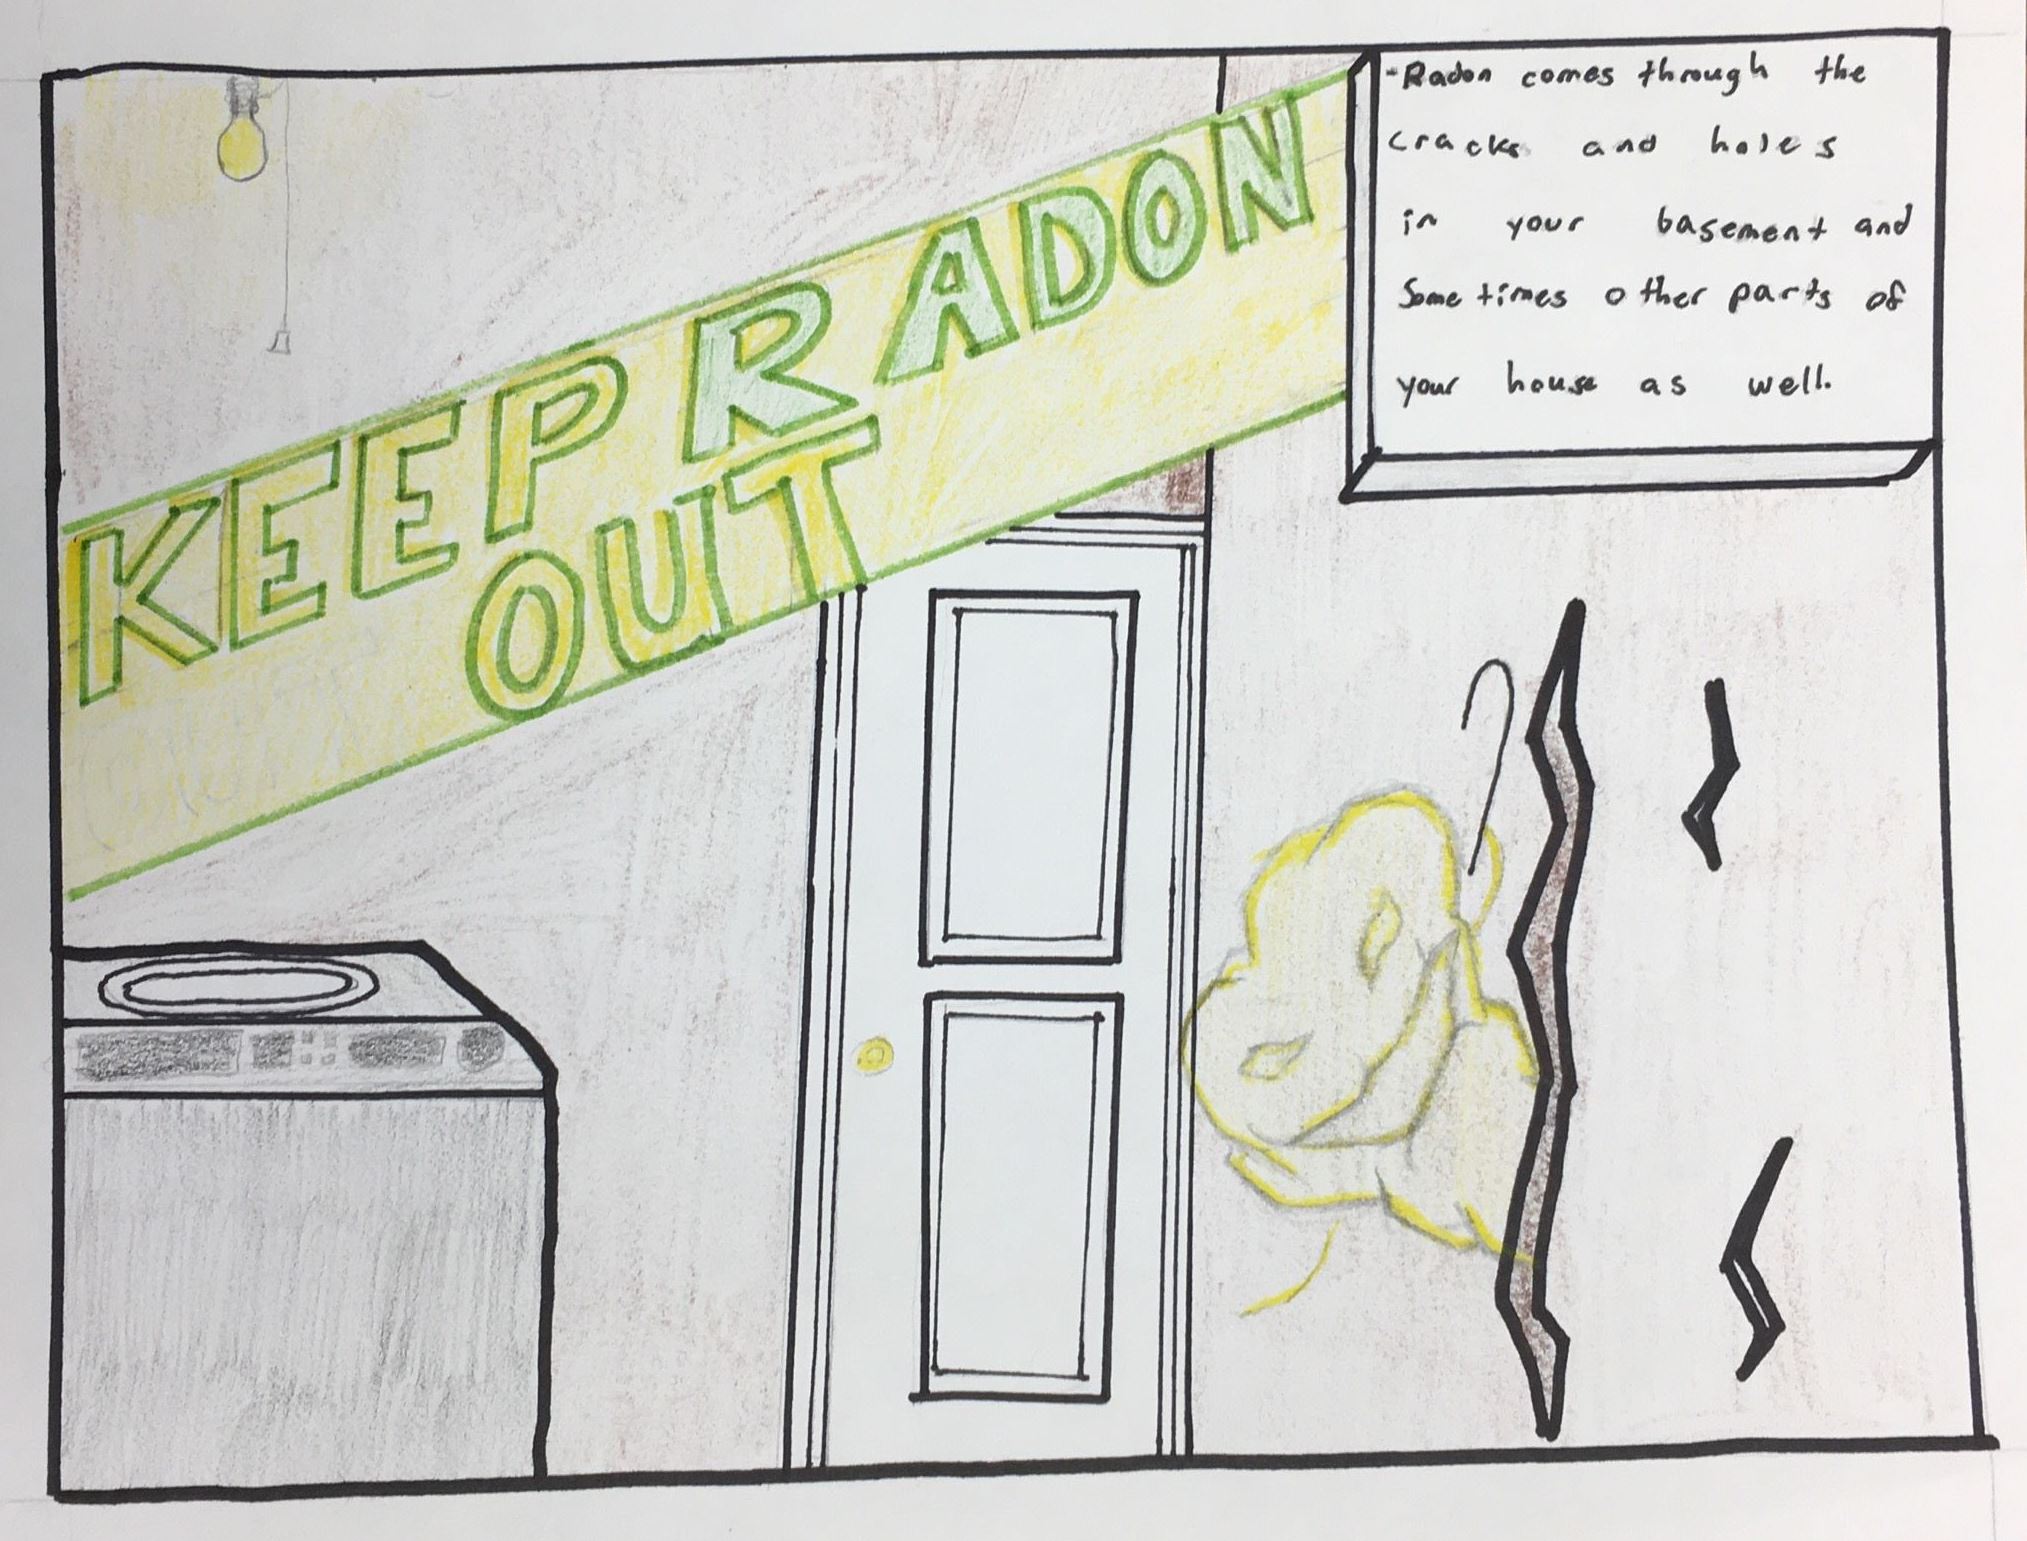 KEEP RADON
OUT
-Radon comes through the
cracks and holes
in your basement and
Sometimes other parts of
your house as well.